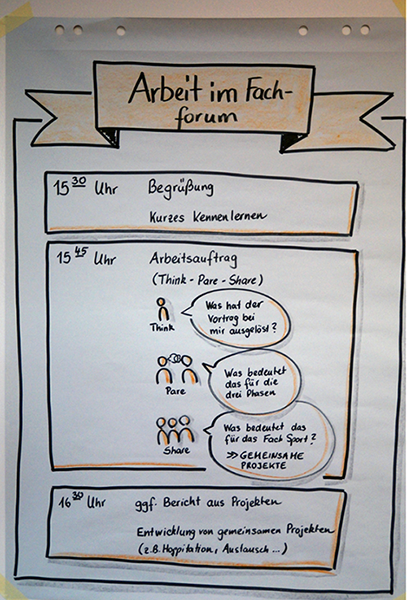 Arbeit im Fach-
forum
15 30 Uhr Begrüßung
Kurzes Kennenlernen
15 45 Uhr Arbeitsauftrag
(Think - Pare - Share)
Think
Was hat der
Vortrag bei
mir ausgelöst?
Pare
Was bedeutet
das für die
drei Phasen
Share
Was bedeutet das
für das Fach Sport?
>> GEMEINSAME
PROJEKTE
16 30 Uhr ggf. Bericht aus Projekten
Entwicklung von gemeinsamen Projekten
(z.B. Hospitation, Austausch ...)